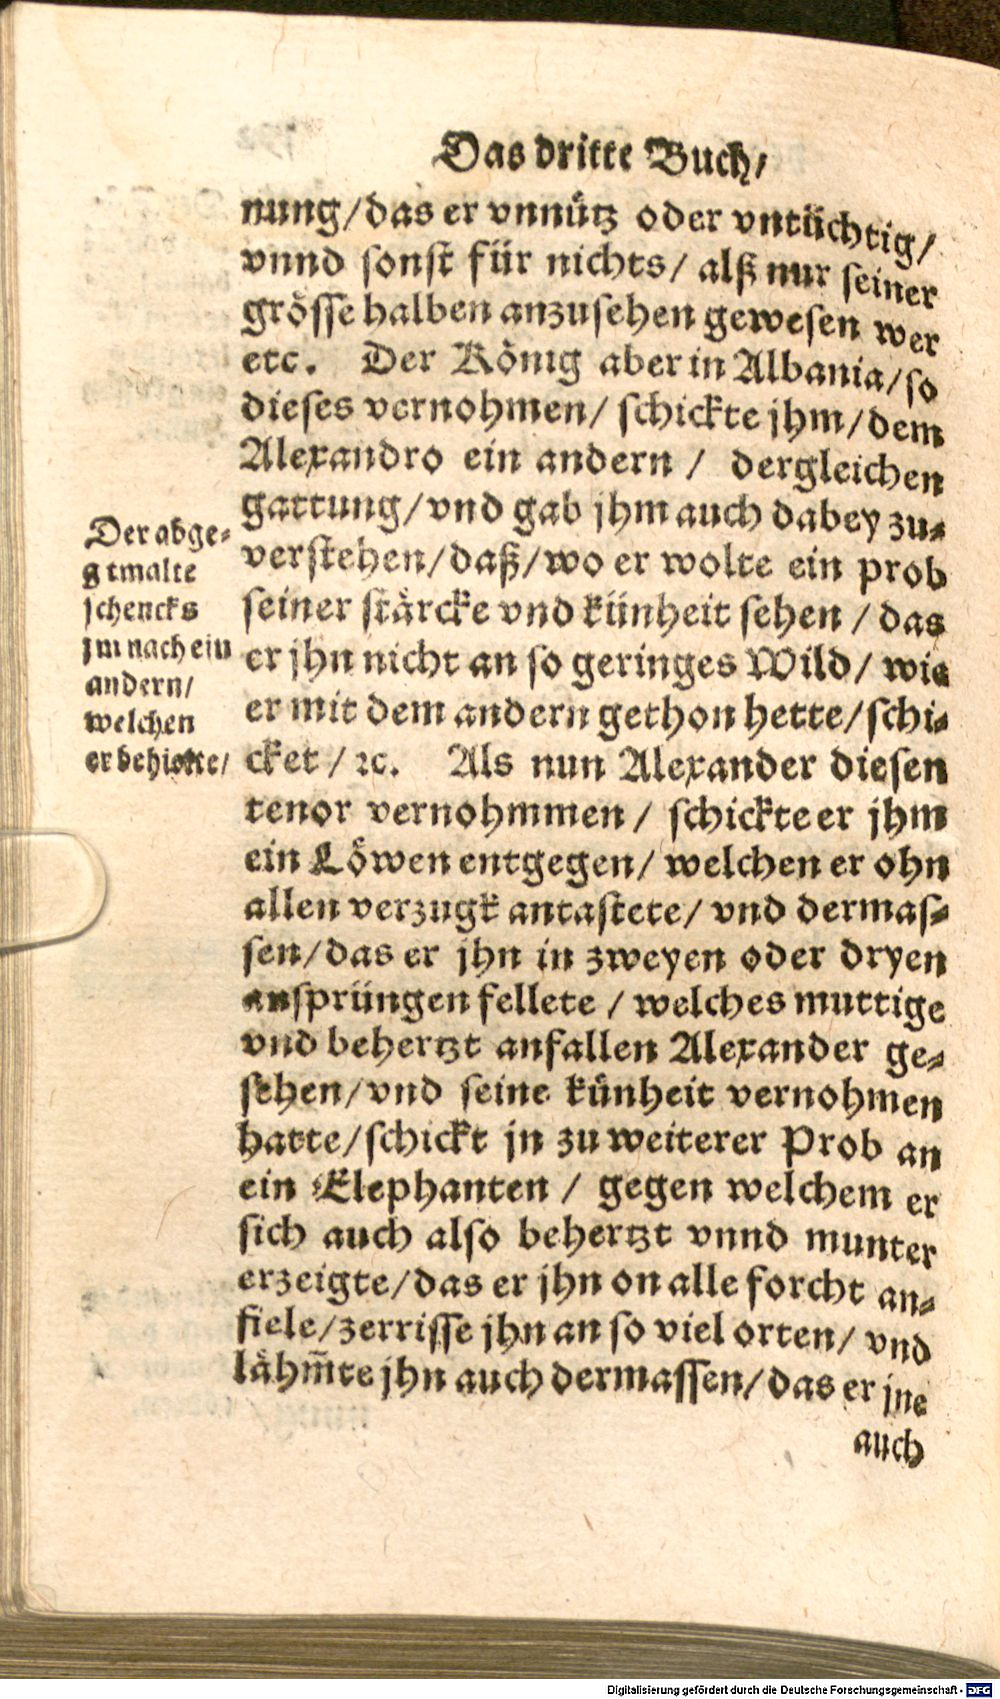 Das dritte Buch/
nung/das er vnnütz oder vntüchtig/
vnnd sonst für nichts/ alß nur seiner
grösse halben anzusehen gewesen wer
etc. Der König aber in Albania/so
dieses vernohmen/ schickte jhm/dem
Alexandro ein andern / dergleichen
gattung/vnd gab jhm auch dabey zu-
verstehen/daß/wo er wolte ein prob
seiner stärcke vnd künheit sehen / das
er jhn nicht an so geringes Wild/ wie
er mit dem andern gethon hette/schi-
cket / ꝛc. Als nun Alexander diesen
tenor vernohmmen / schickte er jhm
ein Löwen entgegen/ welchen er ohn
allen verzugk antastete/ vnd dermas-
sen/das er jhn in zweyen oder dryen
ansprüngen fellete / welches muttige
vnd behertzt anfallen Alexander ge-
sehen/vnd seine künheit vernohmen
hatte/schickt jn zu weiterer Prob an
ein Elephanten / gegen welchem er
sich auch also behertzt vnnd munter
erzeigte/das er jhn on alle forcht an-
fiele/zerrisse jhn an so viel orten/ vnd
lähm̄te jhn auch dermassen/das er jne
auch
Der abge-
malte
schenckt
jm nach ein
andern/
welchen
er
Digitalisierung gefördert durch die Deutsche Forschungsgemeinschaft - DFG